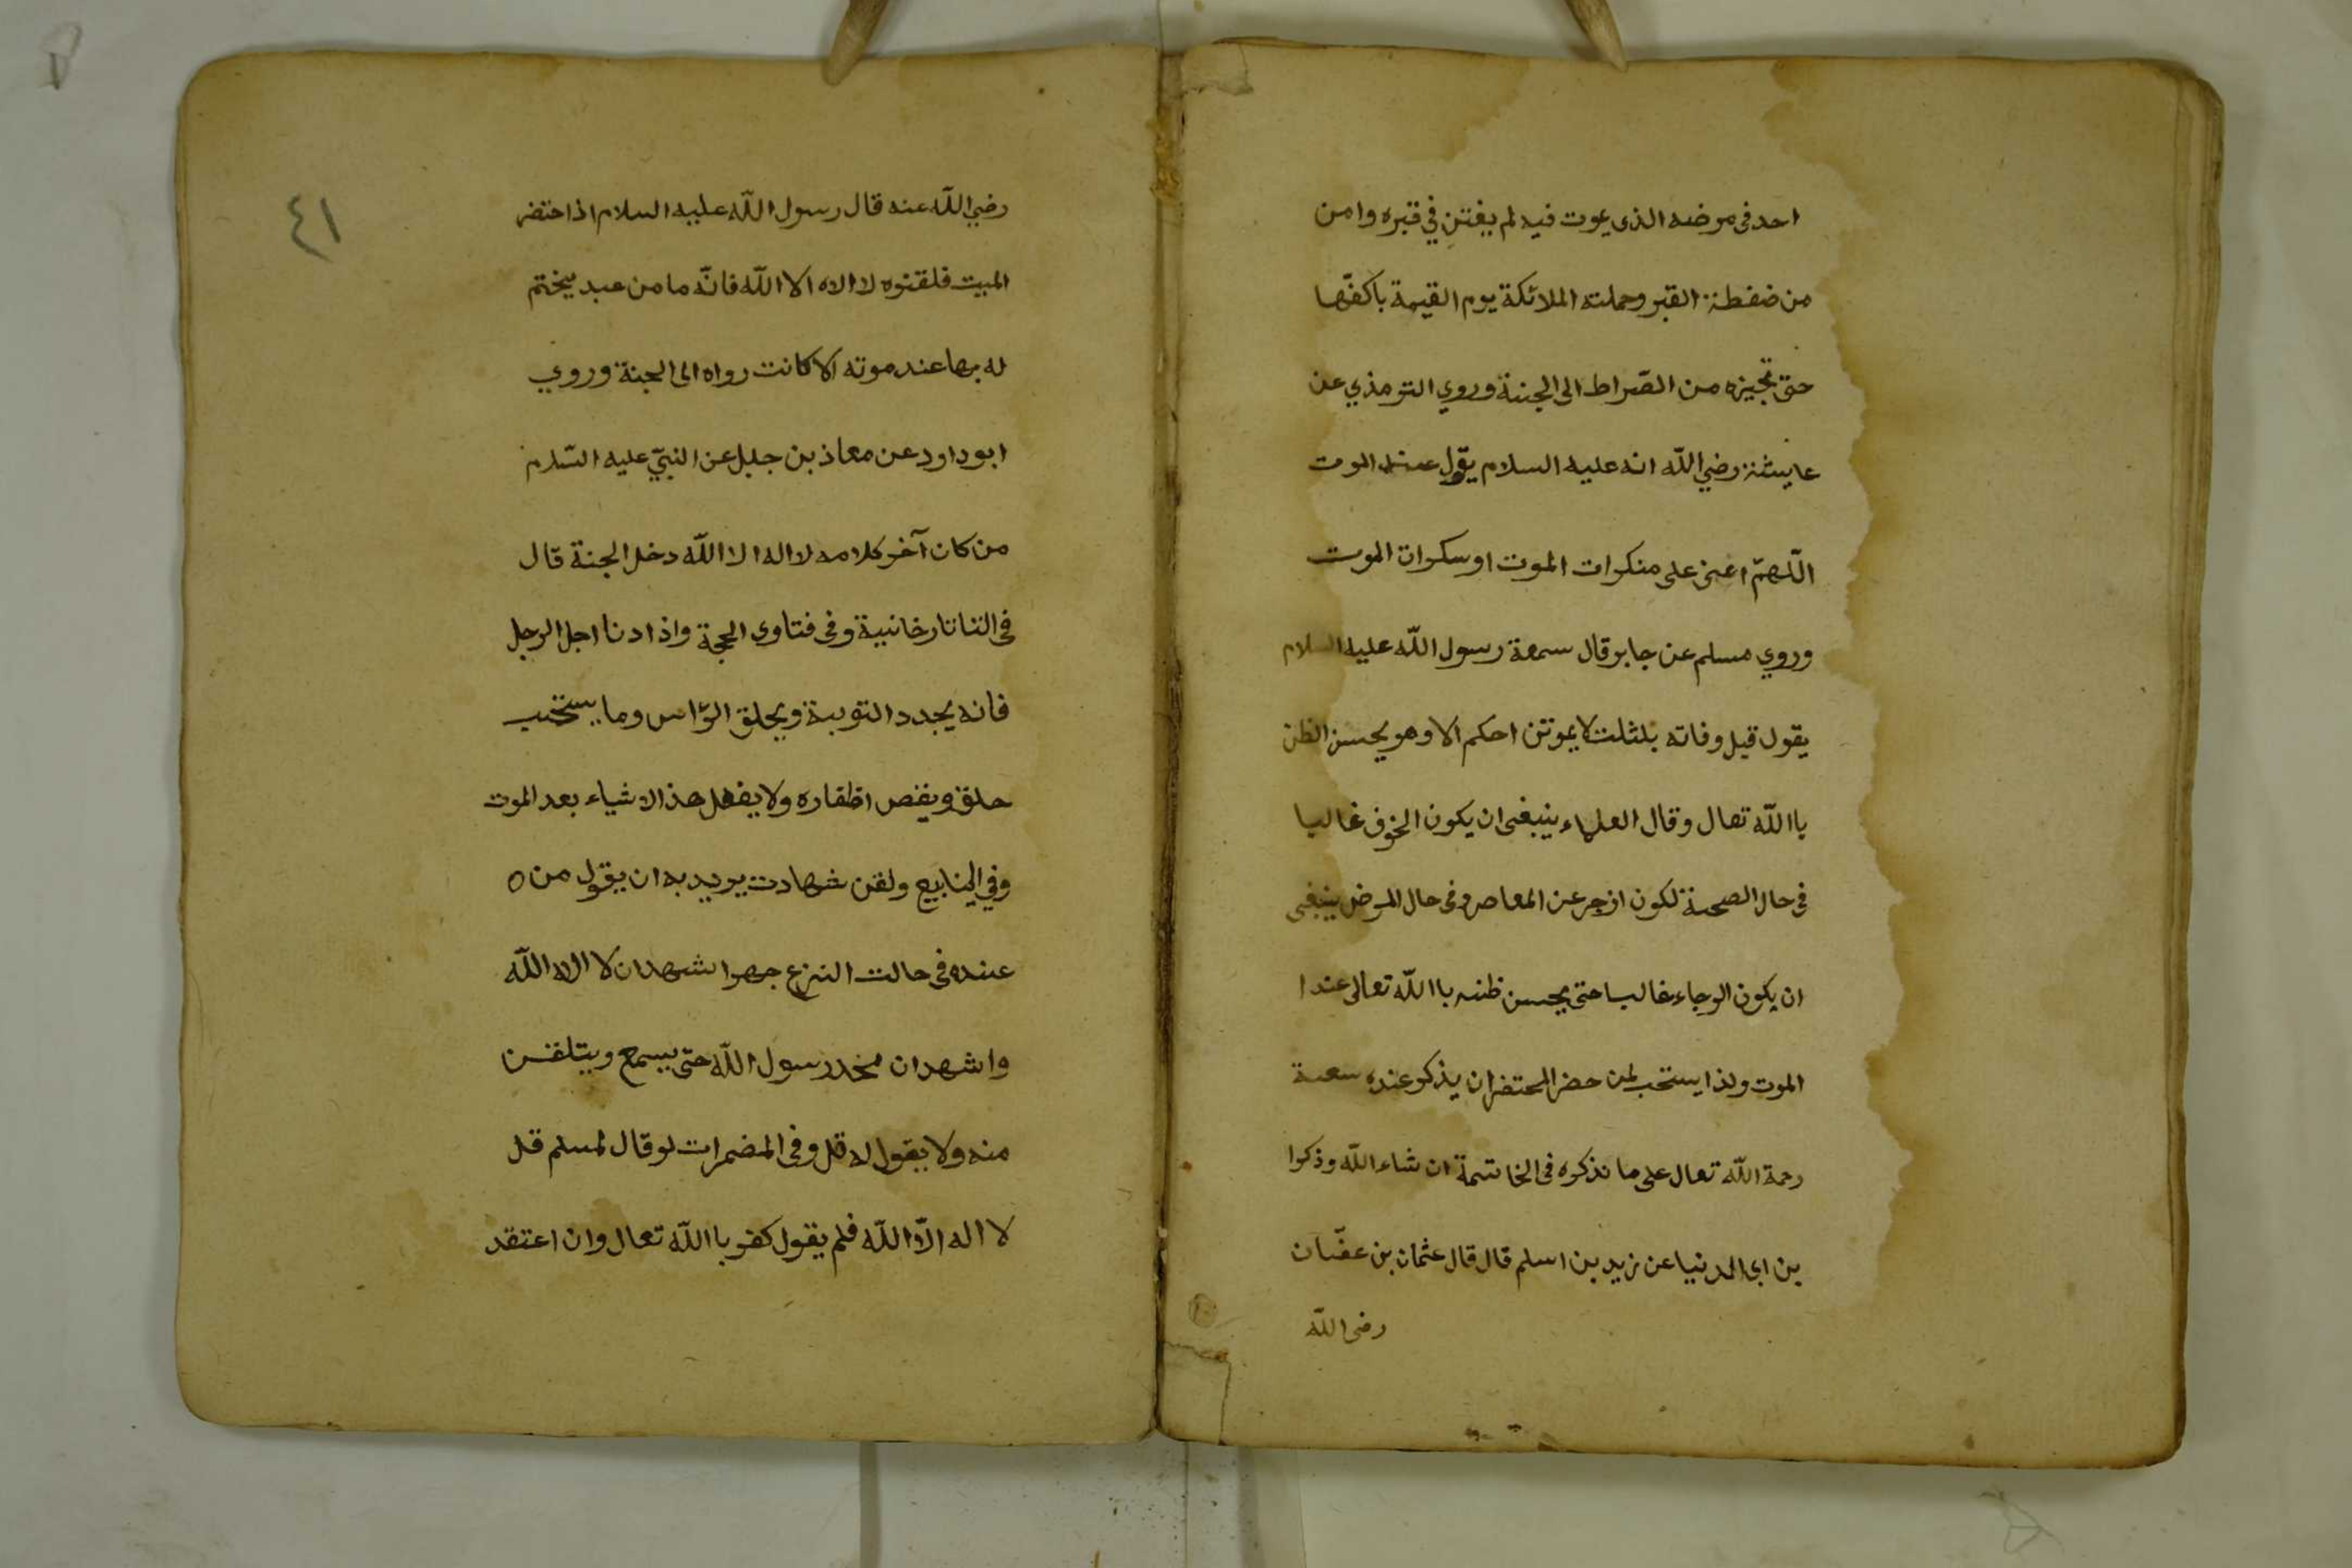 احد فى مرضه الذى يموت فيه لم يفتن في قبره وامن
من ضغطة القبر وحملته الملائكة يوم القيمة باكفّها
حتى تجيزه من الصّراط الى الجنة وروي الترمذي عن
عايشة رضي اللّه انه عليه السلام يقول عند الموت
اللّهمّ اعنى على منكرات الموت او سكرات الموت
وروي مسلم عن جابر قال سمعة رسول اللّه عليه السلام
يقول قبل وفاته بثلث لا يموتن احكم الا وهو يحسن الظن
باللّه تعال وقال العلماء ينبغى ان يكون الخوف غالبا
فى حال الصحة لكون ازجر عن المعاصر وفى حال المرض ينبغى
ان يكون الرجاء غالبا حتى يحسن ظنه باللّه تعالى عند ا
الموت ولذا يستحب لمن حضر المحتضر ان يذكر عنده سعة
رحمة اللّه تعال على ما نذكره فى الخاتمة ان شاء اللّه وذكرا
بن ابى الدنيا عن زيد بن اسلم قال قال عثمان بن عفّان
رضى اللّه
٤١
رضي اللّه عنه قال رسول اللّه عليه السلام اذا احتضر
الميت فلقنوه لا الاه الا اللّه فانّه ما من عبد يختم
له بها عند موته الا كانت رواه الى الجنة وروي
ابو داود عن معاذ بن جبل عن النبيّ عليه السّلام
من كان آخر كلامه لا اله الا اللّه دخل الجنة قال
فى التاتارخانية وفى فتاوى الحجة واذا دنا اجل الرجل
فانه يجدد التوبة ويحلق الرّاس وما يستحب
حلقه ويقص اظفاره ولا يفعل هذ الاشياء بعد الموت
وفي الينابيع ولقن شهادت يريد به ان يقول من ه
عنده فى حالت النزع جهرا اشهد ان لا الاه اللّه
واشهد ان محمد رسول اللّه حتى يسمع ويتلقن
منه ولا يقول له قل وفى المضمرات لو قال لمسلم قل
لا اله الاّ اللّه فلم يقول كفر باللّه تعال وان اعتقد